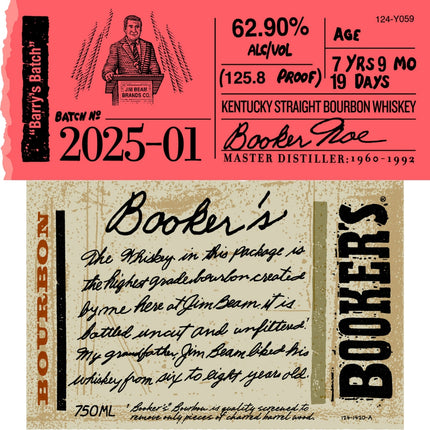 124-Y059
62.90%
ALC/VOL
(125.8 PROOF)
AGE
7 YRS 9 MO
19 DAYS
"Barry's Batch"
JIM BEAM
BRANDS CO.
BATCH Nº
2025-01
KENTUCKY STRAIGHT BOURBON WHISKEY
Booker Noe
MASTER DISTILLER: 1960-1992
BOURBON
Booker's
The Whiskey in this package is
the highest grade bourbon created
by me here at Jim Beam it is
bottled uncut and unfiltered.
My grandfather, Jim Beam liked his
whiskey from six to eight years old.
750ML
Booker's® Bourbon is quality screened to
remove only pieces of charred barrel wood.
BOOKER'S®
124-1430-A